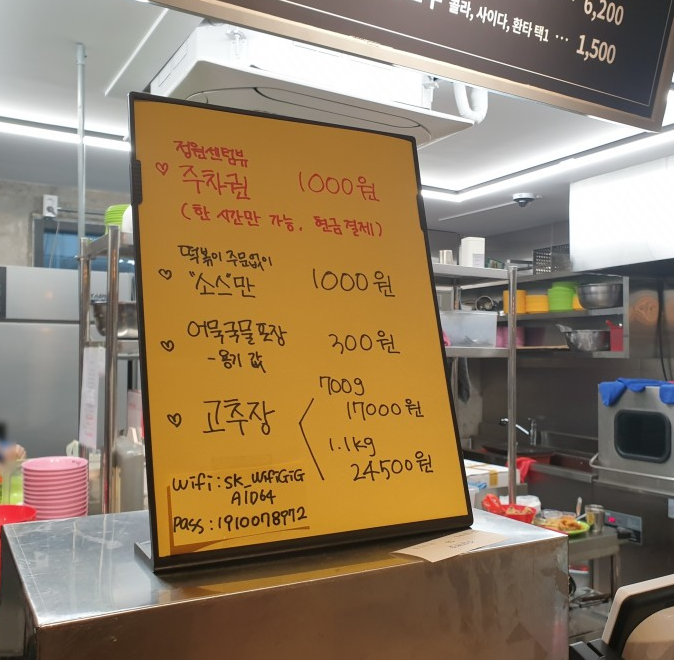 6,200
콜라, 사이다, 환타 택1 ··· 1,500
정원센텀뷰
♡ 주차권 1000원
(한 시간만 가능, 현금결제)
떡볶이 주문없이
♡ "소스"만 1000원
♡ 어묵국물포장 300원
-용기 값
700g
♡ 고추장 17000원
1.1kg
24500원
Wifi : SK_WifiGiG
A1D64
Pass : 1910078972